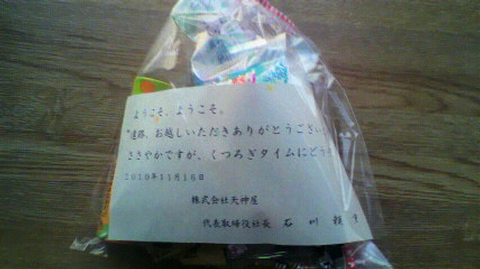 ようこそ、ようこそ。
遠路、お越しいただきありがとうござい
ささやかですが、くつろぎタイムにどう
2010年11月16日
株式会社天神屋
代表取締役社長 石川